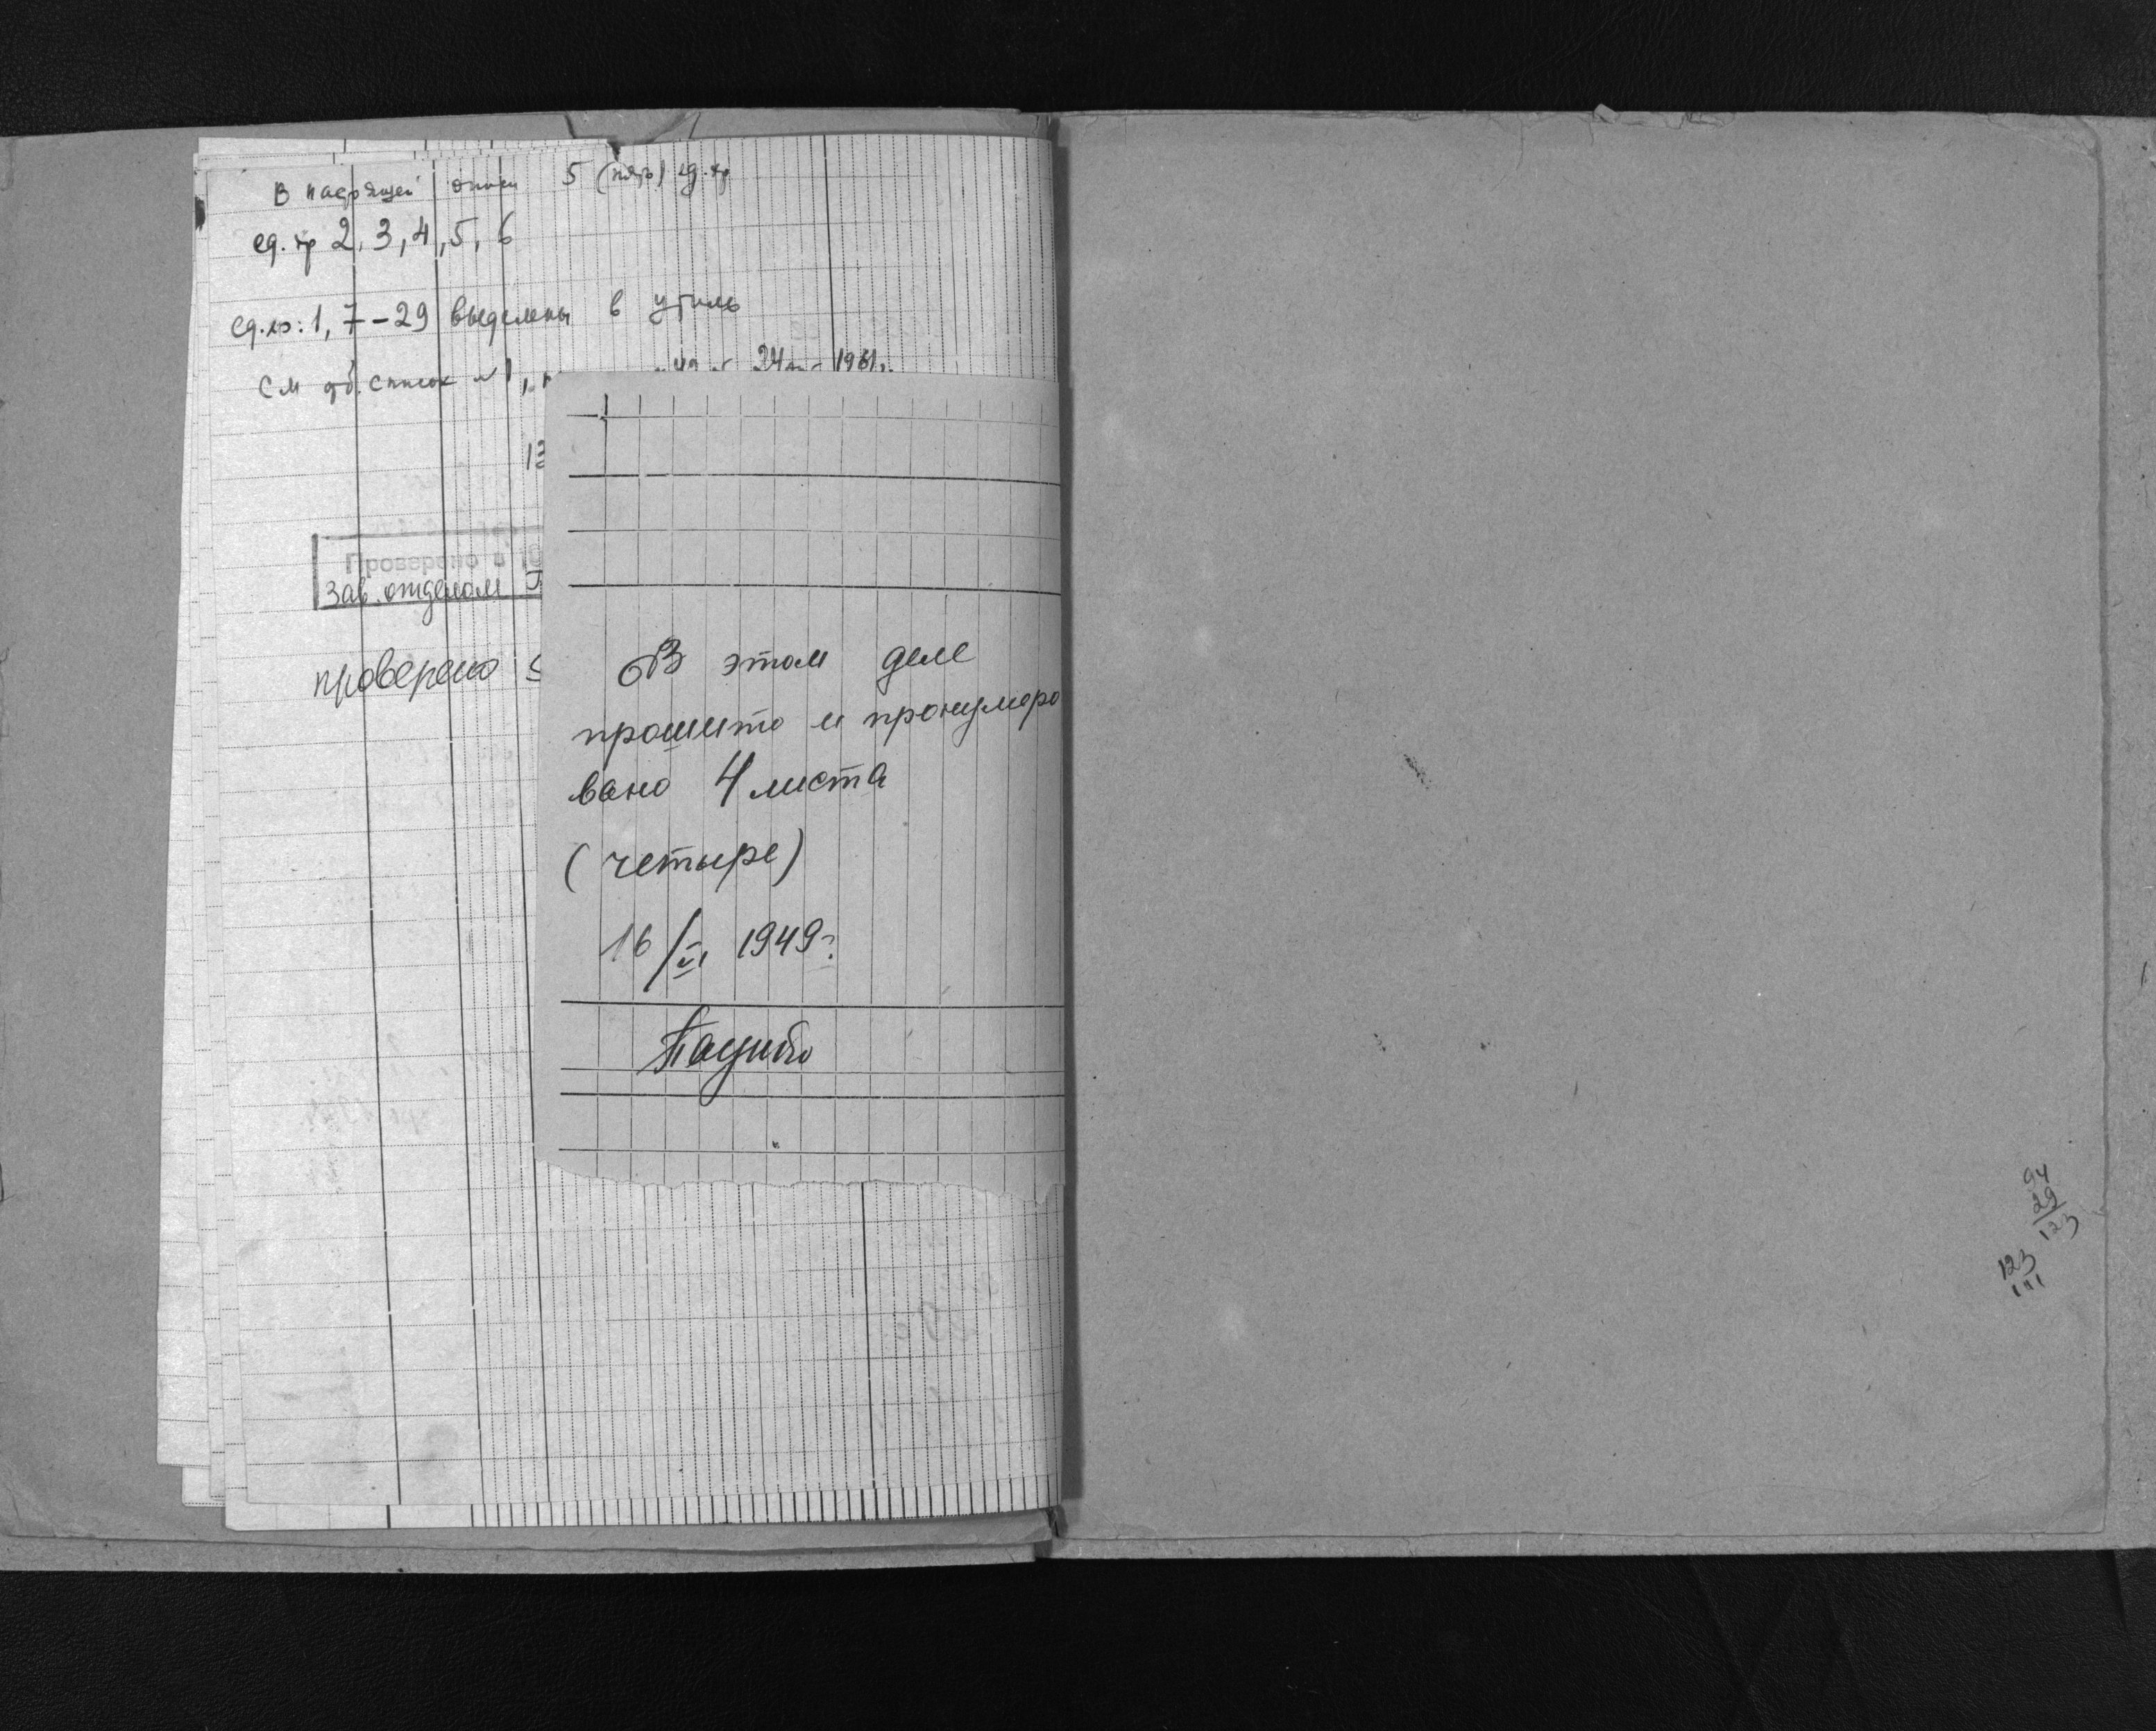 В настоящей описи 5 (пять) ед. хр
ед. хр 2, 3, 4, 5, 6
ед. хр: 1, 7-29 выделены в утиль
См об. список №1,
24 1961г.
13
Проверено в 19
Зав. отделом
проверено
В этом деле
прошито и пронумеро
вано 4 листа
(четыре)
16/VI 1949г.
94
29
123
123